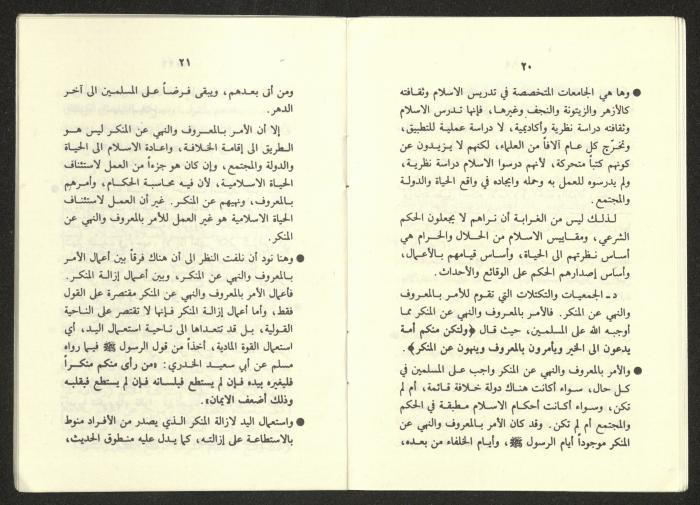 ٢٠
● وها هي الجامعات المتخصصة في تدريس الاسلام وثقافته
كالأزهر والزيتونة والنجف وغيرها، فإنها تدرس الاسلام
وثقافته دراسة نظرية وأكاديمية، لا دراسة عملية للتطبيق،
وتخرّج كل عام آلافاً من العلماء، لكنهم لا يزيدون عن
كونهم كتباً متحركة، لأنهم درسوا الاسلام دراسة نظرية،
ولم يدرسوه للعمل به وحمله وايجاده في واقع الحياة والدولة
والمجتمع.
لذلك ليس من الغرابة أن نراهم لا يجعلون الحكم
الشرعي، ومقاييس الاسلام من الحلال والحرام هي
أساس نظرتهم الى الحياة، وأساس قيامهم بالأعمال،
وأساس إصدارهم الحكم على الوقائع والأحداث.
د ـ الجمعيات والتكتلات التي تقوم للأمر بالمعروف
والنهي عن المنكر. فالأمر بالمعروف والنهي عن المنكر مما
أوجبه الله على المسلمين، حيث قال ﴿ولتكن منكم أمة
يدعون الى الخير ويأمرون بالمعروف وينهون عن المنكر﴾.
● والأمر بالمعروف والنهي عن المنكر واجب على المسلمين في
كل حال، سواء أكانت هناك دولة خلافة قائمة، أم لم
تكن، وسواء أكانت أحكام الاسلام مطبقة في الحكم
والمجتمع أم لم تكن. وقد كان الأمر بالمعروف والنهي عن
المنكر موجوداً أيام الرسول ﷺ، وأيام الخلفاء من بعده،
٢١
ومن أتى بعدهم، ويبقى فرضاً على المسلمين الى آخر
الدهر.
إلا أن الأمر بالمعروف والنهي عن المنكر ليس هو
الطريق الى إقامة الخلافة، واعادة الاسلام الى الحياة
والدولة والمجتمع، وإن كان هو جزءاً من العمل لاستئناف
الحياة الاسلامية، لأن فيه محاسبة الحكام، وأمرهم
بالمعروف، ونهيهم عن المنكر. غير أن العمل لاستئناف
الحياة الاسلامية هو غير العمل للأمر بالمعروف والنهي عن
المنكر.
● وهنا نود أن نلفت النظر الى أن هناك فرقاً بين أعمال الأمر
بالمعروف والنهي عن المنكر، وبين أعمال إزالة المنكر.
فأعمال الأمر بالمعروف والنهي عن المنكر مقتصرة على القول
فقط، وأما أعمال إزالة المنكر فإنها لا تقتصر على الناحية
القولية، بل قد تتعداها الى ناحية استعمال اليد، أي
استعمال القوة المادية، أخذاً من قول الرسول ﷺ فيما رواه
مسلم عن أبي سعيد الخدري: «من رأى منكم منكراً
فليغيره بيده فإن لم يستطع فبلسانه فإن لم يستطع فبقلبه
وذلك أضعف الايمان».
● واستعمال اليد لازالة المنكر الذي يصدر من الأفراد منوط
بالاستطاعة على إزالته، كما يدل عليه منطوق الحديث،